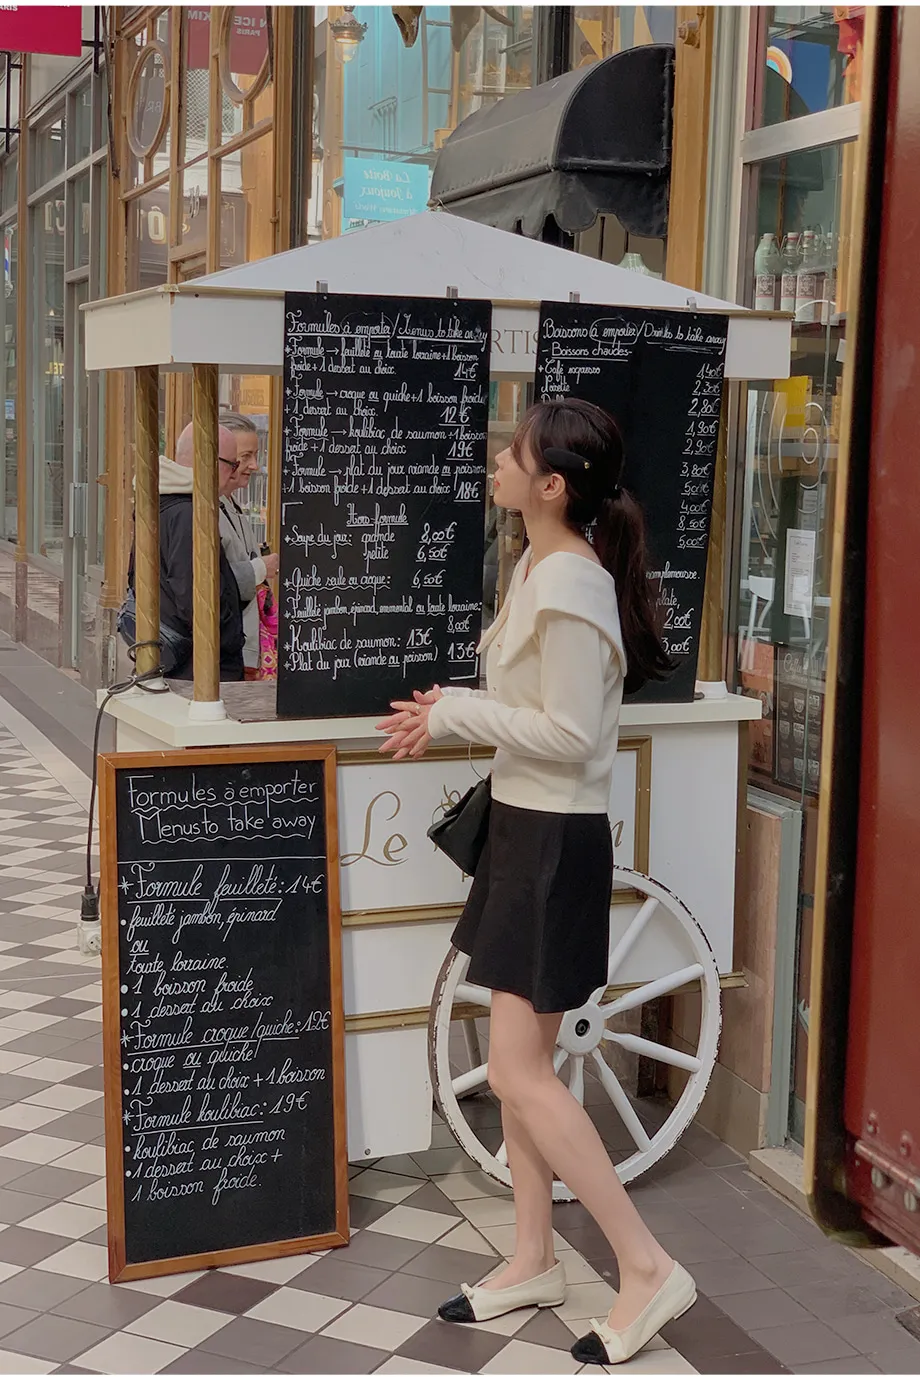 PARIS
N ICE SKIM
PARIS
La Boîte
à Joujoux
RTIS
Formules à emporter/Menus to take away
*Formule → feuilleté ou tourte lorraine+1 boisson
froide+1 dessert au choix. 14€
*Formule → croque ou quiche+1 boisson froide
+1 dessert au choix. 12€
*Formule → koulibiac de saumon +1 boisson
froide +1 dessert au choix. 19€
*Formule → plat du jour viande ou poisson
+1 boisson froide+1 dessert au choix 18€
Hors-formule
*Soupe du jour: grande 8,00€
petite 6,50€
*Quiche seule ou croque: 6,50€
*Feuilleté jambon, épinard, emmental ou tourte lorraine:
8,00€
Koulibiac de saumon: 13€
Plat du jour (viande ou poisson) 13€
Boissons à emporter/Drinks to take away
-Boissons chaudes-
*Café expresso 1,40€
Noisette 2,30€
2,80€
1,90€
2,90€
3,80€
5,00€
4,00€
8,50€
5,00€
pamplemousse.
plate,
2,00€
3,00€
Formules à emporter
Menus to take away
*Formule feuilleté: 14€
• feuilleté jambon, épinard
ou
tourte lorraine.
• 1 boisson froide
• 1 dessert au choix
*Formule croque/quiche: 12€
• croque ou quiche
• 1 dessert au choix + 1 boisson
*Formule koulibiac: 19€
• koulibiac de saumon
• 1 dessert au choix +
1 boisson froide.
Le n